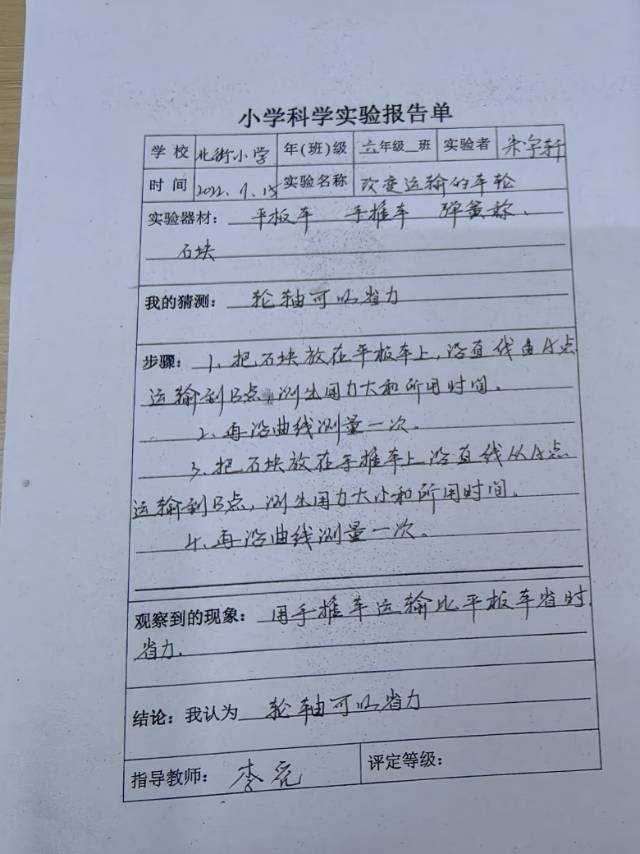 小学科学实验报告单
学校 北街小学 年(班)级 六年级 班 实验者 朱宇轩
时间 2022.9.15 实验名称 改变运输的车轮
实验器材: 平板车 手推车 弹簧称、
石块
我的猜测: 轮轴可以省力
步骤: 1、把石块放在平板车上,沿直线由A点
运输到B点,测出用力大和所用时间。
2、再沿曲线测量一次。
3、把石块放在手推车上沿直线从A点
运输到B点,测出用力大小和所用时间。
4、再沿曲线测量一次。
观察到的现象: 用手推车运输比平板车省时
省力.
结论: 我认为 轮轴可以省力
指导教师: 李亮 评定等级: